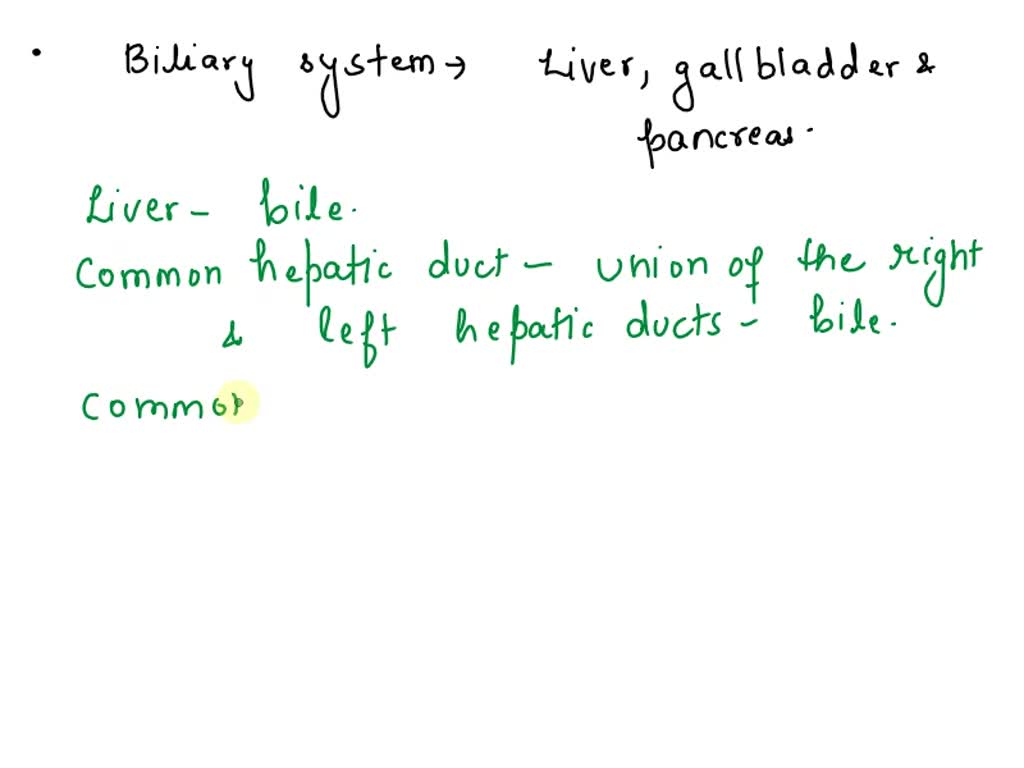 • Biliary system → Liver, gallbladder &
pancreas.
Liver - bile.
Common hepatic duct - union of the right
& left hepatic ducts - bile.
Common